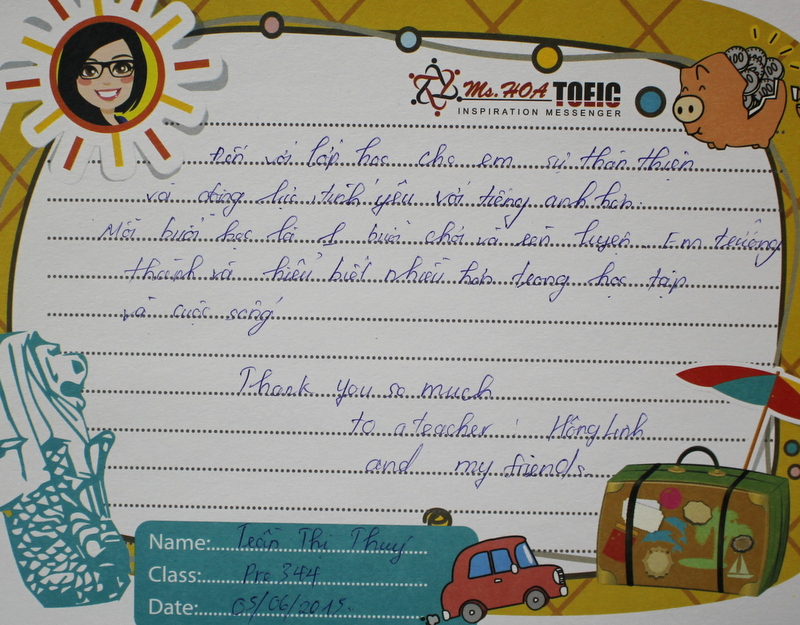 Ms. HOA TOEIC
INSPIRATION MESSENGER
Đến với lớp học cho em sự thân thiện
và động lực, tình yêu với tiếng anh hơn.
Mỗi buổi học là 1 buổi chơi và rèn luyện. Em trưởng
thành và hiểu biết nhiều hơn trong học tập
và cuộc sống
Thank you so much
to a teacher : Hồng Linh
and my friends.
Name: Trần Thị Thuý
Class: Pre 344
Date: 05/06/2015.